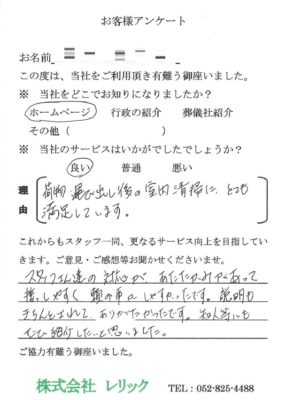 お客様アンケート
お名前
この度は、当社をご利用頂き有難う御座いました。
※ 当社をどこでお知りになりましたか？
ホームページ 行政の紹介 葬儀社紹介
その他（ ）
※ 当社のサービスはいかがでしたでしょうか？
良い 普通 悪い
理由
荷物運び出し後の室内清掃に、とても
満足しています。
これからもスタッフ一同、更なるサービス向上を目指してい
きます。ご意見・ご感想等お聞かせくださいませ。
スタッフさん達の対応が、あたたかみがあって
話しやすく、頼み事がしやすかったです。説明も
きちんとされて、ありがたかったです。知人等にも
ぜひ紹介したいと思いました。
ご協力有難う御座いました。
株式会社 レリック TEL：052-825-4488